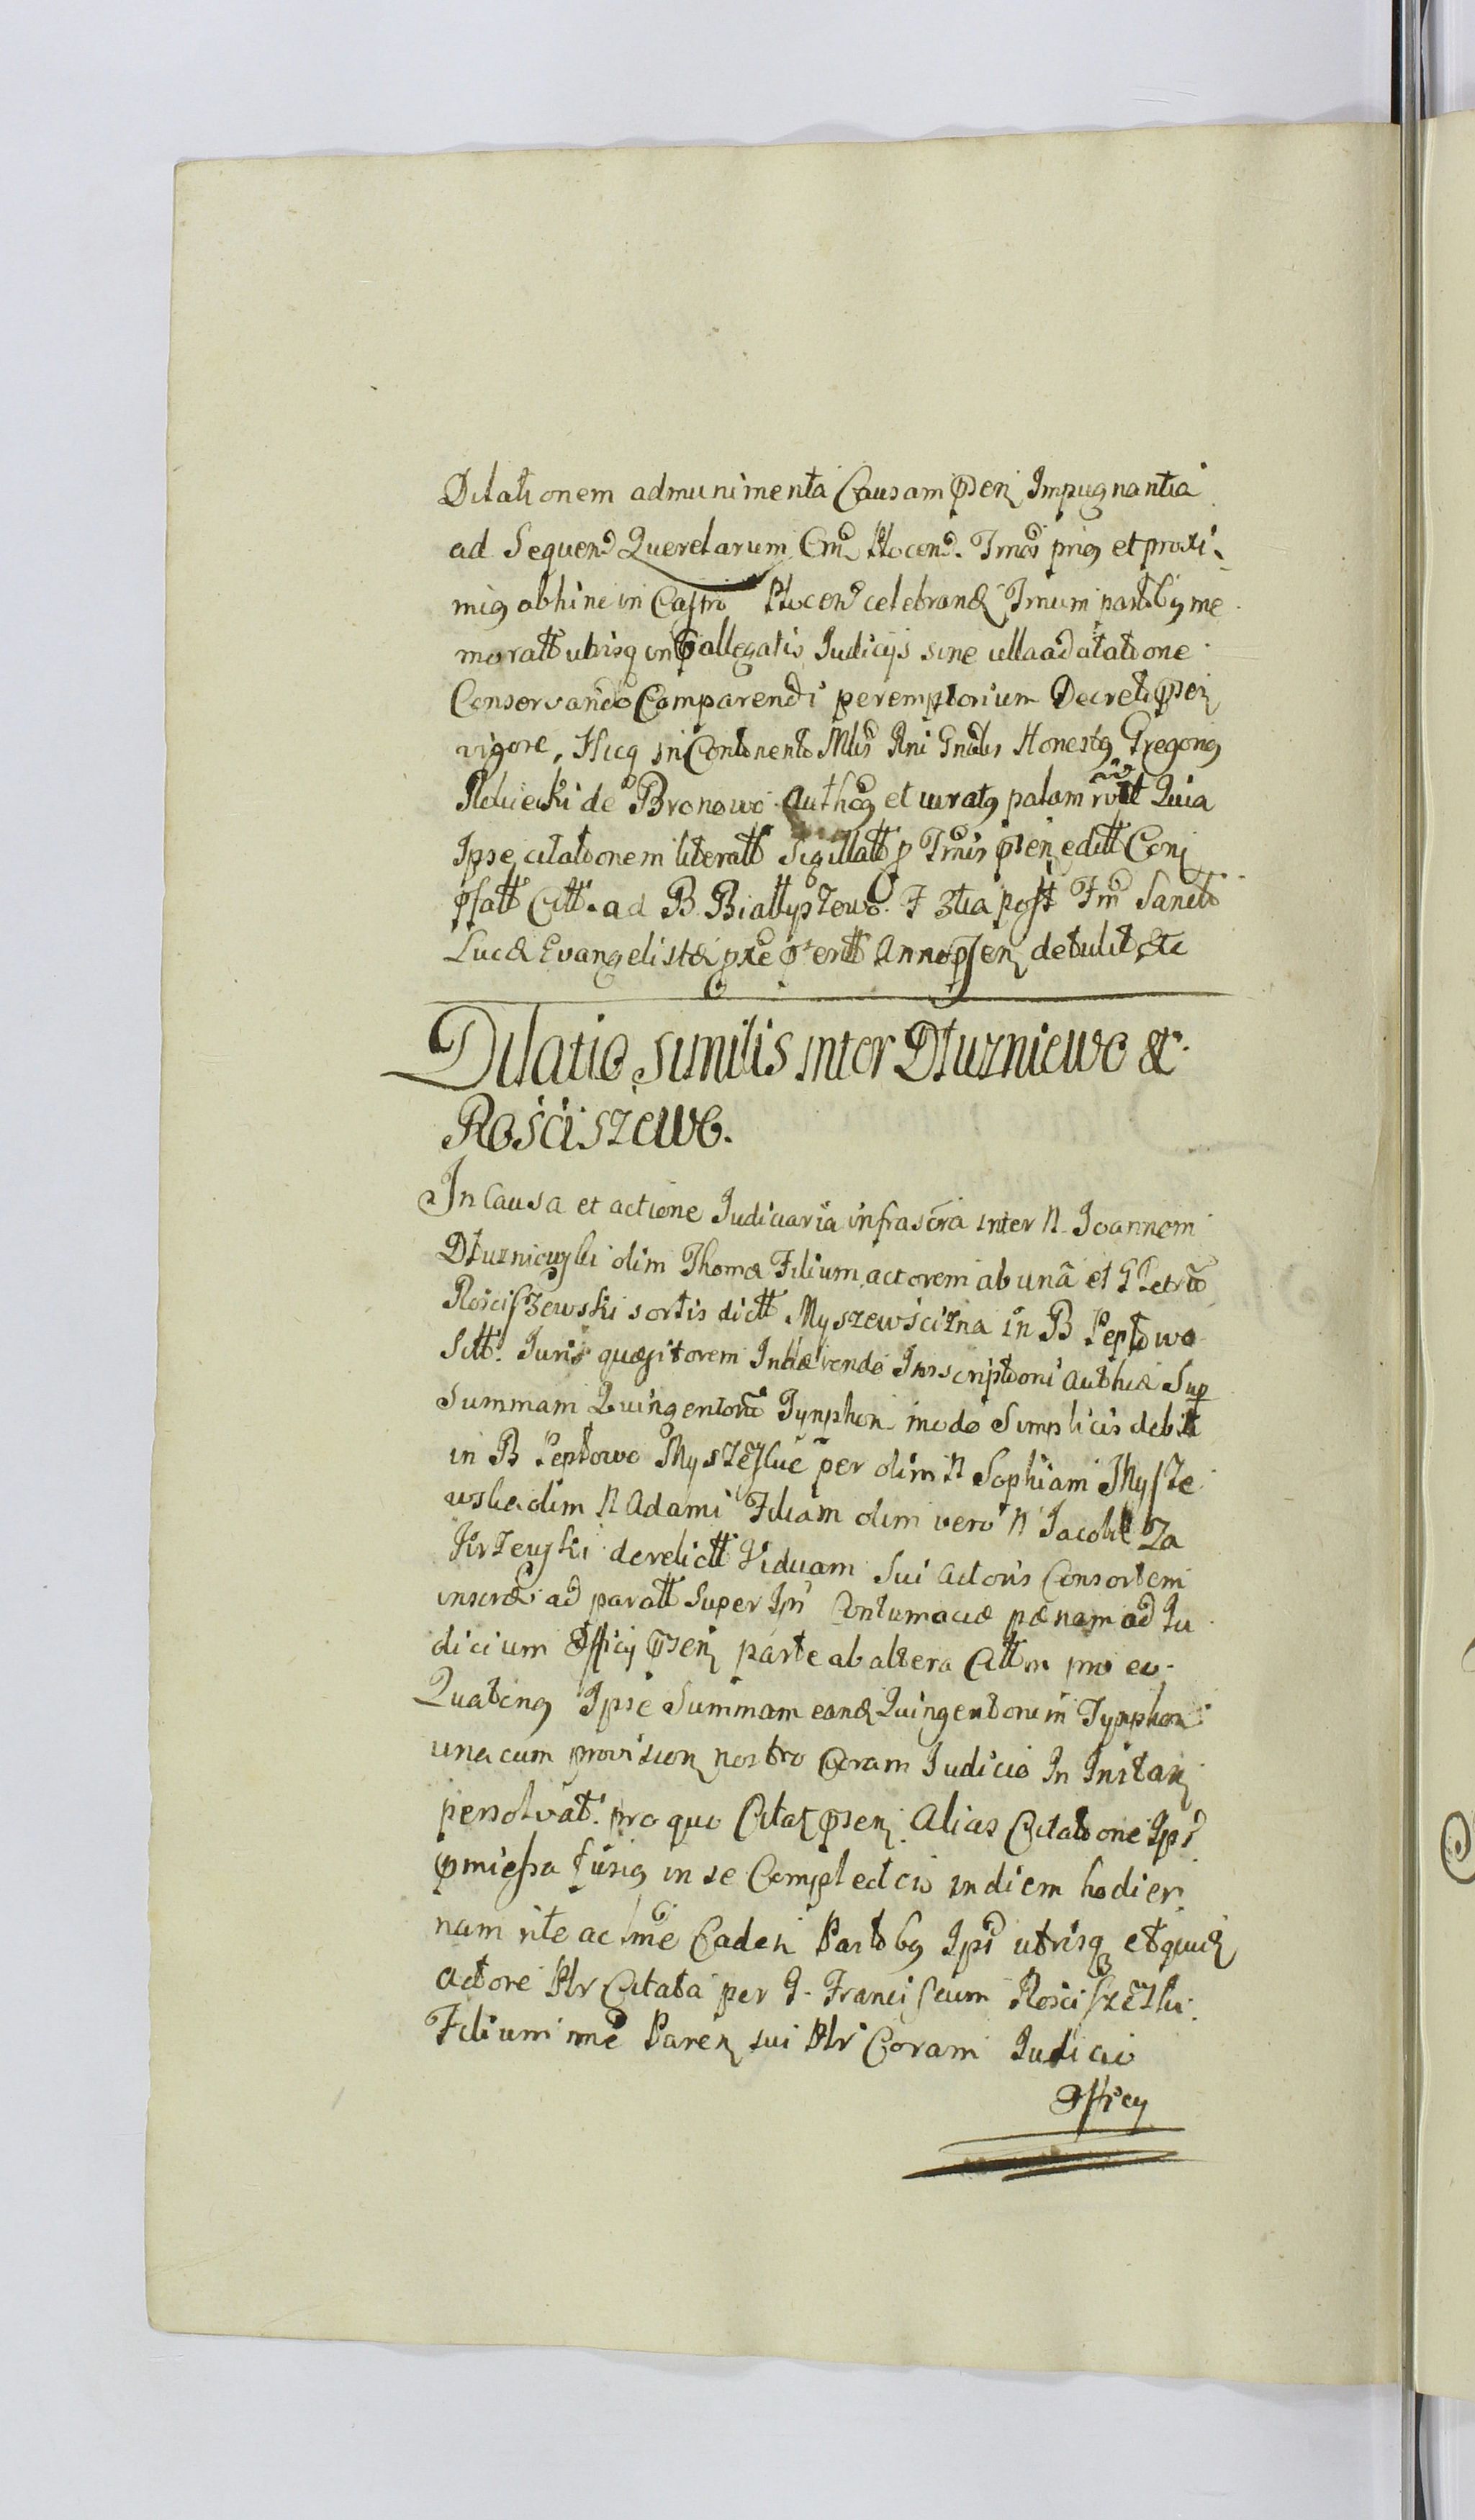 Dilationem ad munimenta Causam pñsen Impugnantia
ad Sequend Querelarum Cmd Plocend. Tmos prios et proxi-
mios abhinc in Castro Plocend celebrand Tmum partibus me
moratt utrisq in allegatis Judicijs sine ulla ad citatione
Conservando Comparendi peremptorium Decreti pñsen
vigore, Hucq in Continenti Mlis Rni Gnalis Honestg Gregorig
de Bronowo Authcg et iuratg palam rcvit Quia
Ipse citationem literatt Sigillatt p Tmis pñsen editt Conj
psatt Citt. ad B. Biallyszewo. F 3tia post Fm Sancti
Lucæ Evangelistæ præterit Anno pñsen detulit Etc
Dilatio similis inter Dłuzniewo &
Rościszewo.
In Causa et actione Judiciaria infrascra inter N. Joannem
Dłuzniewski olim Thomæ Filium actorem ab unâ et G Petrũ
Rosciszewski sortis dictt Myszewścizna in B Peptowo
Sitt. Juris quæsitorem Inhærendo Inscriptioni Authcæ Sup
Summam Quingentorũ Tynphon modo Simplicis debiti
in B Peptowo per olim N Sophiam Mysze
wska olim N Adami Filiam olim vero N Jacobi Za
krzewski derelictt Viduam Sui Actoris Consortem
inscræ ad paratt Super Ipi Contumaciæ pænam ad Ju
dicium Officij pñsen parte ab altera Cittm pro eo
Quateng Ipse Summam eand Quingentorum Tynphon
una cum provision nostro Coram Judicio In Instan
persolvat. pro quo Citat pñsen Alias Citatione Ipsi
pmissa fusig in se Complectcio in diem hodier
nam rite ac lme Caden Partibg Ipsi utrisq et quid
actore Plr Citata per G. Franciscum Rosciszewski
Filium nne Paren sui Plr Coram Judicio
Officij